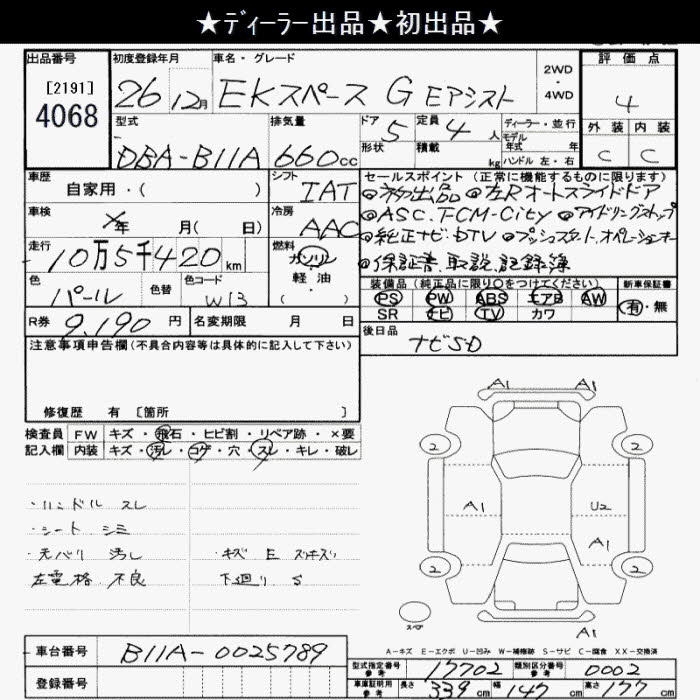 ★ディーラー出品★初出品★
出品番号
[2191]
4068
初度登録年月
26 12月
車名・グレード
EKスペース G Eアシスト
2WD
・
4WD
評価点
4
外装 内装
C C
型式
DBA-B11A
排気量
660cc
ドア 5
形状
定員 4 人
積載 kg
ディーラー・並行
モデル
年式 年
ハンドル 左・右
車歴
自家用・( )
シフト
IAT
車検
年 月( 日)
冷房
AAC
走行
10万5千420 km
燃料
ガソリン
軽油
・
( )
色
パール
色替
色コード
W13
R券 9,190 円
名変期限 月 日
セールスポイント (正常に機能するものに限ります)
◎初出品 ◎左Rオートスライドドア
◎ASC.FCM-City ◎アイドリングストップ
◎純正ナビ・DTV ◎プッシュスタート.オペレーションキー
◎保証書.取説.記録簿
装備品 (純正品に限り○をつけてください)
新車保証書
PS PW ABS エアB AW
SR ナビ TV カワ
有・無
後日品
ナビSD
注意事項申告欄(不具合内容等は具体的に記入して下さい)
修復歴 有 [箇所 ]
検査員 FW キズ・飛石・ヒビ割・リペア跡・×要
記入欄 内装 キズ・汚レ・コゲ・穴・スレ・キレ・破レ
・ハンドル スレ
・シート シミ
・天バリ 汚レ
・キズ E スリキズ
左電格 不良
下廻り S
A1 A1
2 2
A1 U2
A1
2 2
スペア
A1
A-キズ E-エクボ U-凹み W-補修跡 S-サビ C-腐食 XX-交換済
車台番号 B11A-0025789
登録番号
型式指定番号
参考
17702
類別区分番号
参考
0002
車庫証明用
参考
長さ 339 cm 幅 147 cm 高さ 177 cm